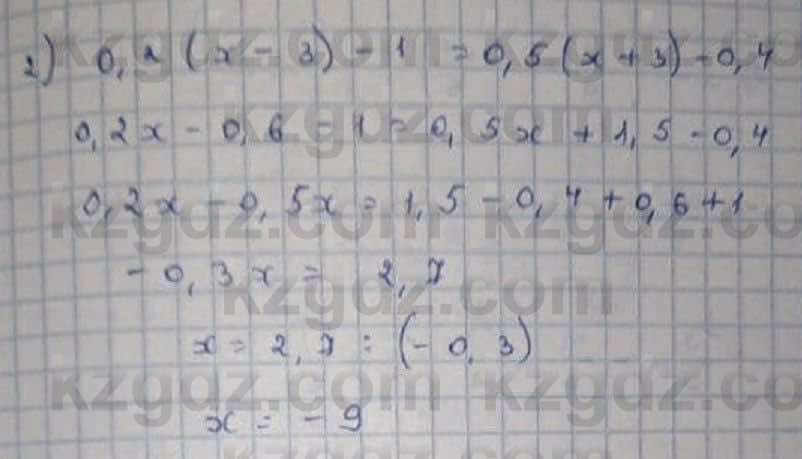 2) 0,2 (x - 3) - 1 = 0,5 (x + 3) - 0,4
0,2x - 0,6 - 1 = 0,5x + 1,5 - 0,4
0,2x - 0,5x = 1,5 - 0,4 + 0,6 + 1
- 0,3x = 2,7
x = 2,7 : (- 0,3)
x = - 9
kzgdz.com